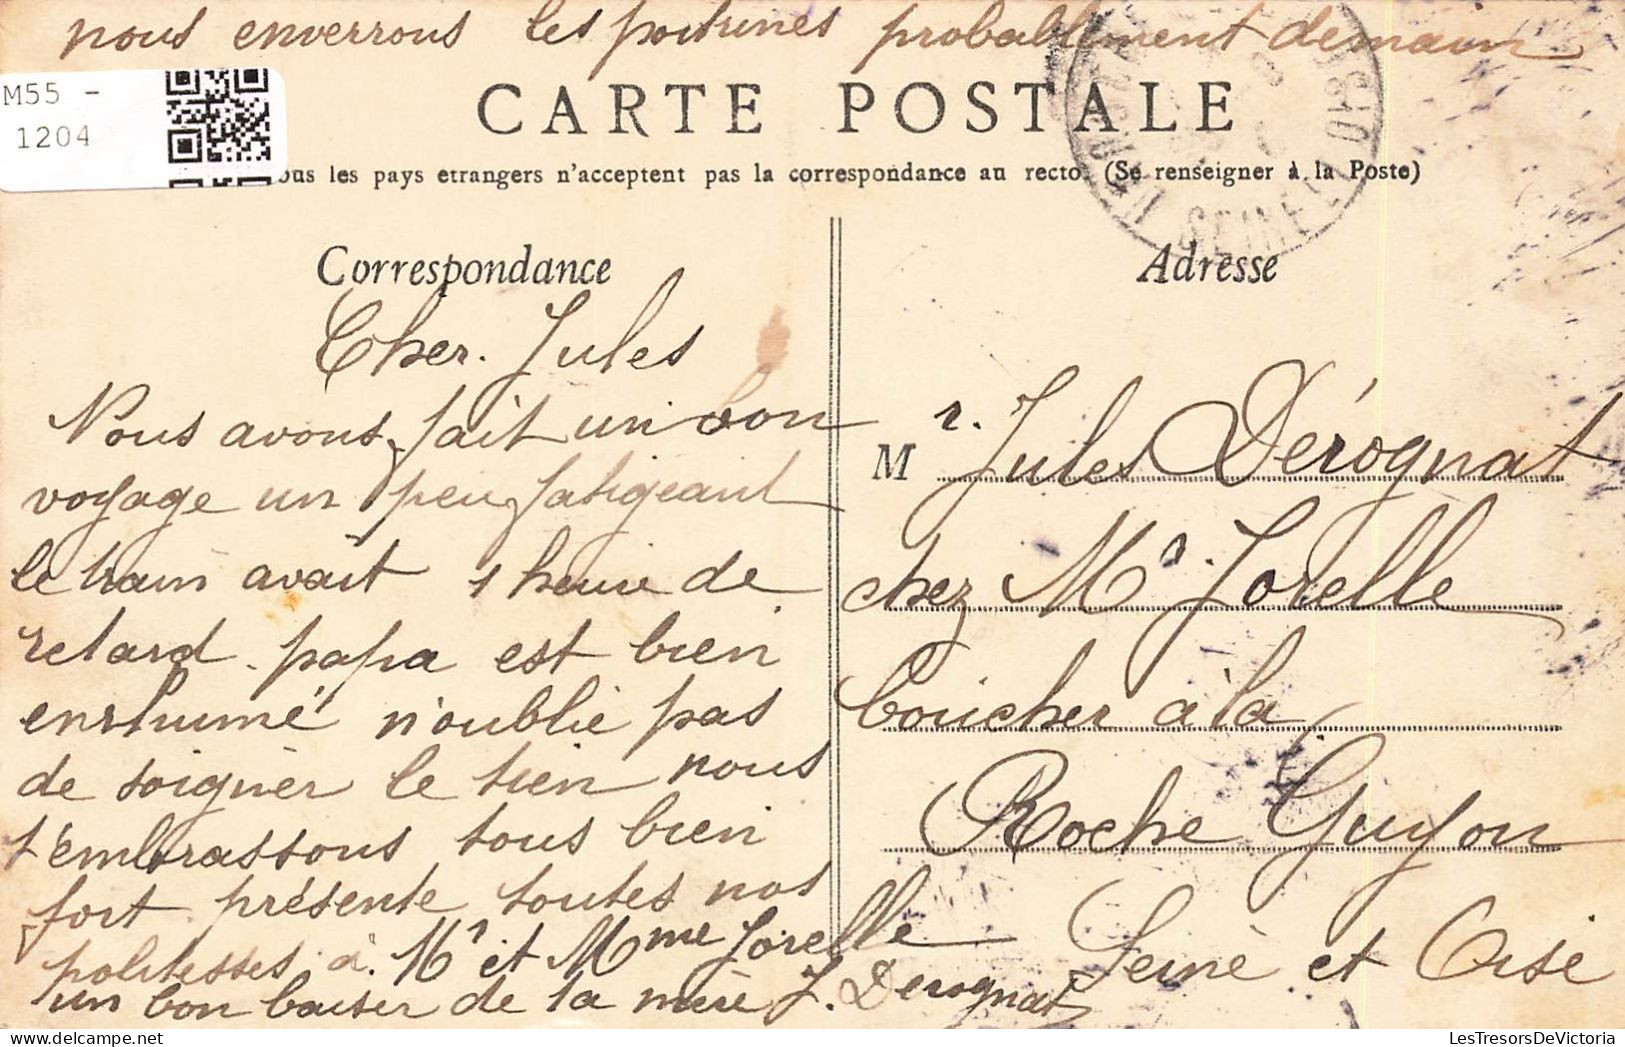 nous enverrons les poitrines probablement demain
M55 -
1204
CARTE POSTALE
ous les pays etrangers n'acceptent pas la correspondance au recto (Se renseigner à la Poste)
Correspondance
Cher Jules
Nous avons fait un bon
voyage un peu fatigeant
le train avait 1 heure de
retard. papa est bien
enrhumé n'oublie pas
de soigner le tien nous
t'embrassons tous bien
fort présente toutes nos
politesses à Mr et Mme Jorelle
un bon baiser de ta mère J. Derognat
Adresse
Mr. Jules Dérognat
chez Mr Jorelle
boucher à la
Roche Guyon
Seine et Oise
SEINE
LesTresorsDeVictoria